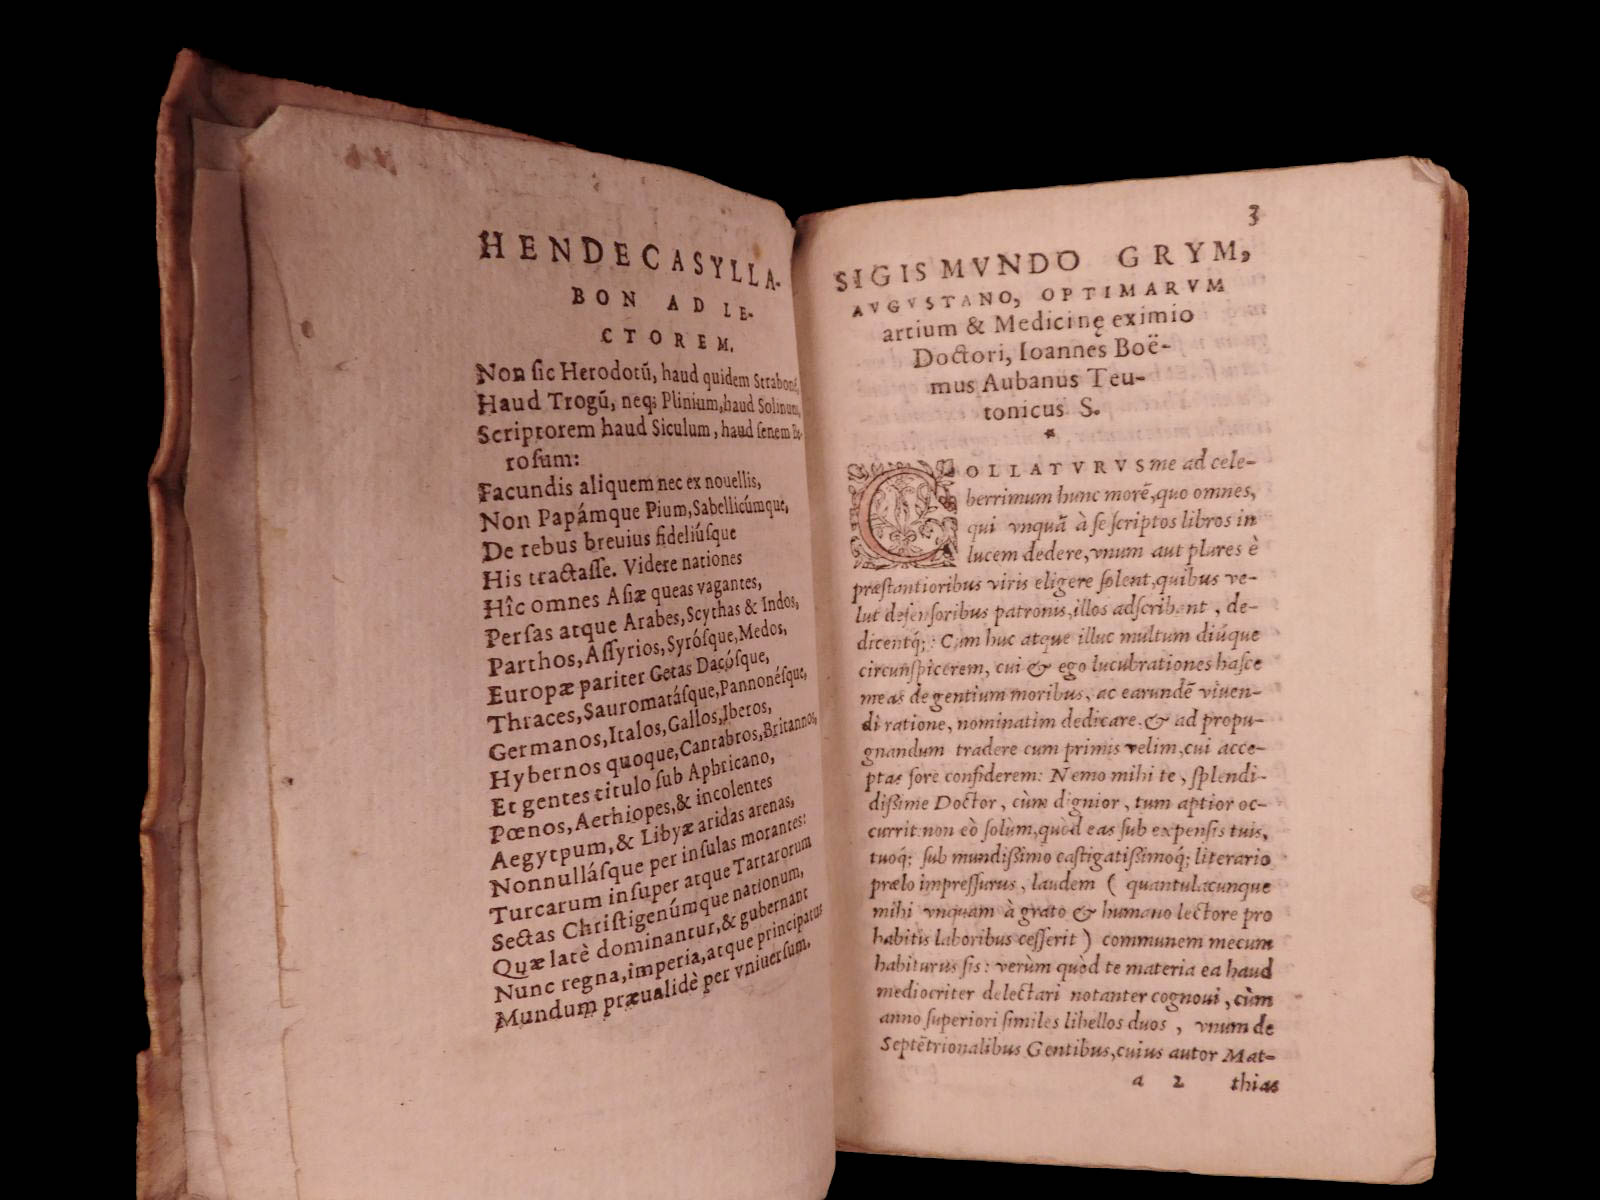 HENDECASYLLA-
BON AD LE-
CTOREM.
Non ſic Herodotũ, haud quidem Strabonẽ,
Haud Trogũ, neq; Plinium, haud Solinum,
Scriptorem haud Siculum, haud ſenem Be-
roſum:
Facundis aliquem nec ex nouellis,
Non Papámque Pium, Sabellicúmque,
De rebus breuius fideliúſque
His tractaſſe. Videre nationes
Hîc omnes Aſiæ queas vagantes,
Perſas atque Arabes, Scythas & Indos,
Parthos, Aſſyrios, Syróſque, Medos,
Europæ pariter Getas Dacóſque,
Thraces, Sauromatáſque, Pannonéſque,
Germanos, Italos, Gallos, Iberos,
Hybernos quoque, Cantabros, Britannos,
Et gentes titulo ſub Aphricano,
Pœnos, Aethiopes, & incolentes
Aegytpum, & Libyæ aridas arenas,
Nonnulláſque per inſulas morantes:
Turcarum inſuper atque Tartarorum
Sectas Chriſtigenúmque nationum,
Quæ latè dominantur, & gubernant
Nunc regna, imperia, atque principatus
Mundum præualidè per vniuerſum.
3
SIGISMVNDO GRYM,
AVGVSTANO, OPTIMARVM
artium & Medicinę eximio
Doctori, Ioannes Boë-
mus Aubanus Teu-
tonicus S.
*
COLLATVRVS me ad cele-
berrimum hunc morẽ, quo omnes,
qui vnquã à ſe ſcriptos libros in
lucem dedere, vnum aut plures è
præſtantioribus viris eligere ſolent, quibus ve-
lut defenſoribus patronis, illos adſcribant, de-
dicentq́;: Cùm huc atque illuc multum diúque
circunſpicerem, cui & ego lucubrationes haſce
meas de gentium moribus, ac earundẽ viuen-
di ratione, nominatim dedicare & ad propu-
gnandum tradere cum primis velim, cui acce-
ptas fore confiderem: Nemo mihi te, ſplendi-
diſſime Doctor, cùm dignior, tum aptior oc-
currit: non eò ſolùm, quòd eas ſub expenſis tuis,
tuoq́; ſub mundiſſimo caſtigatiſſimoq́; literario
prælo impreſſurus, laudem ( quantulacunque
mihi vnquam à grato & humano lectore pro
habitis laboribus ceſſerit ) communem mecum
habiturus ſis: verùm quòd te materia ea haud
mediocriter delectari notanter cognoui, cùm
anno ſuperiori ſimiles libellos duos, vnum de
Septẽtrionalibus Gentibus, cuius autor Mat-
a 2 thias